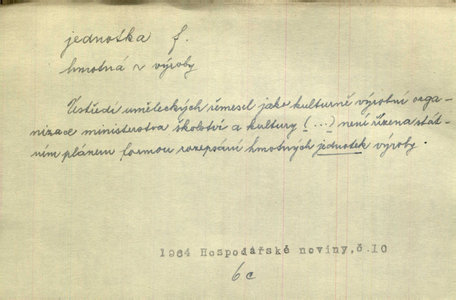 jednotka f.
hmotná ~ výroby
Ústředí uměleckých řemesel jako kulturně výrobní orga-
nizace ministerstva školství a kultury (...) není řízena stát-
ním plánem formou rozepsání hmotných jednotek výroby.
1964 Hospodářské noviny,č.10
6c